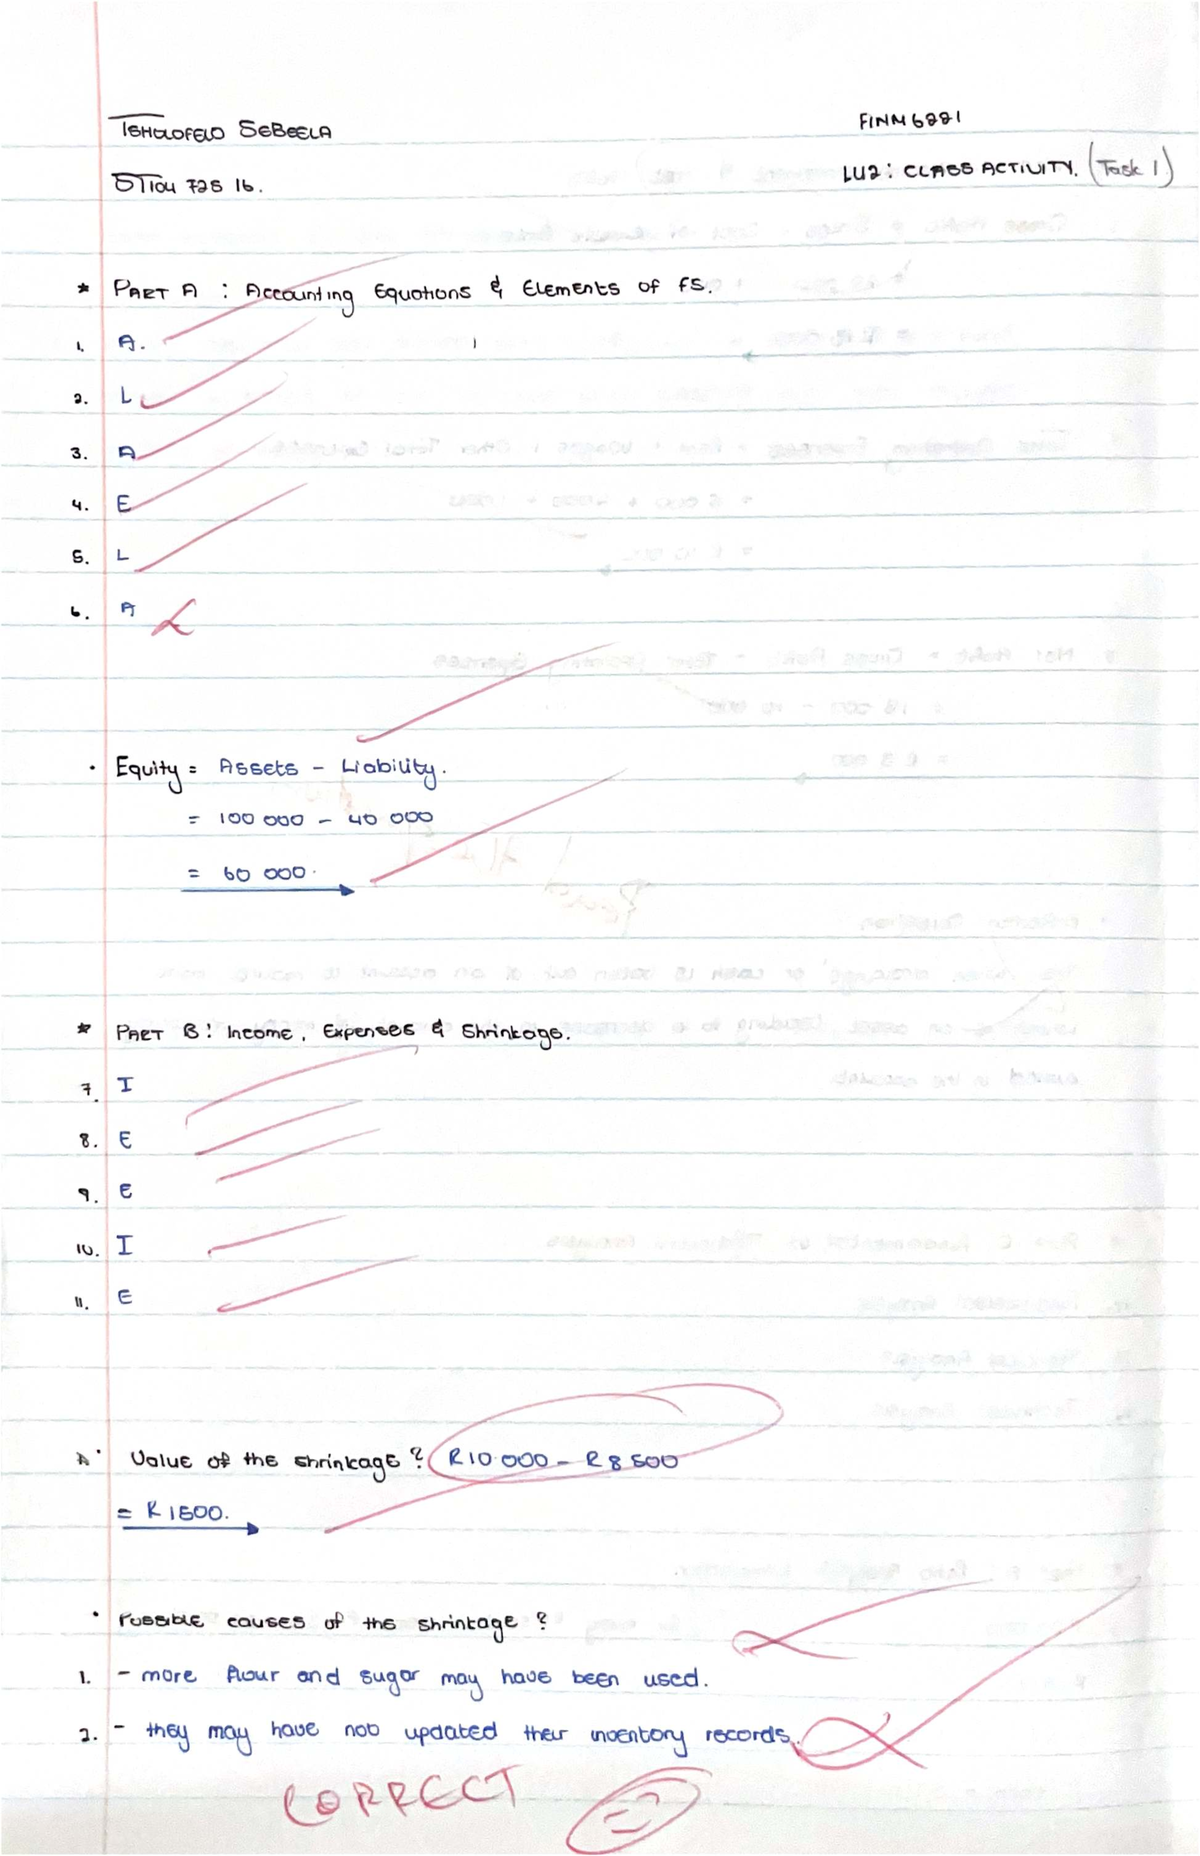 TSHOLOFELO SEBEELA
FINM6221
ST104 725 16.
LU2: CLASS ACTIVITY. (Task 1)
* PART A : Accounting Equations & Elements of FS.
1. A.
2. L
3. A
4. E
5. L
6. A
• Equity = Assets - Liability.
= 100 000 - 40 000
= 60 000.
* PART B: Income, Expenses & Shrinkage.
7. I
8. E
9. E
10. I
11. E
• Value of the shrinkage? R10 000 - R8 500
= R1500.
• Possible causes of the shrinkage?
1. - more flour and sugar may have been used.
2. - they may have not updated their inventory records.
CORRECT